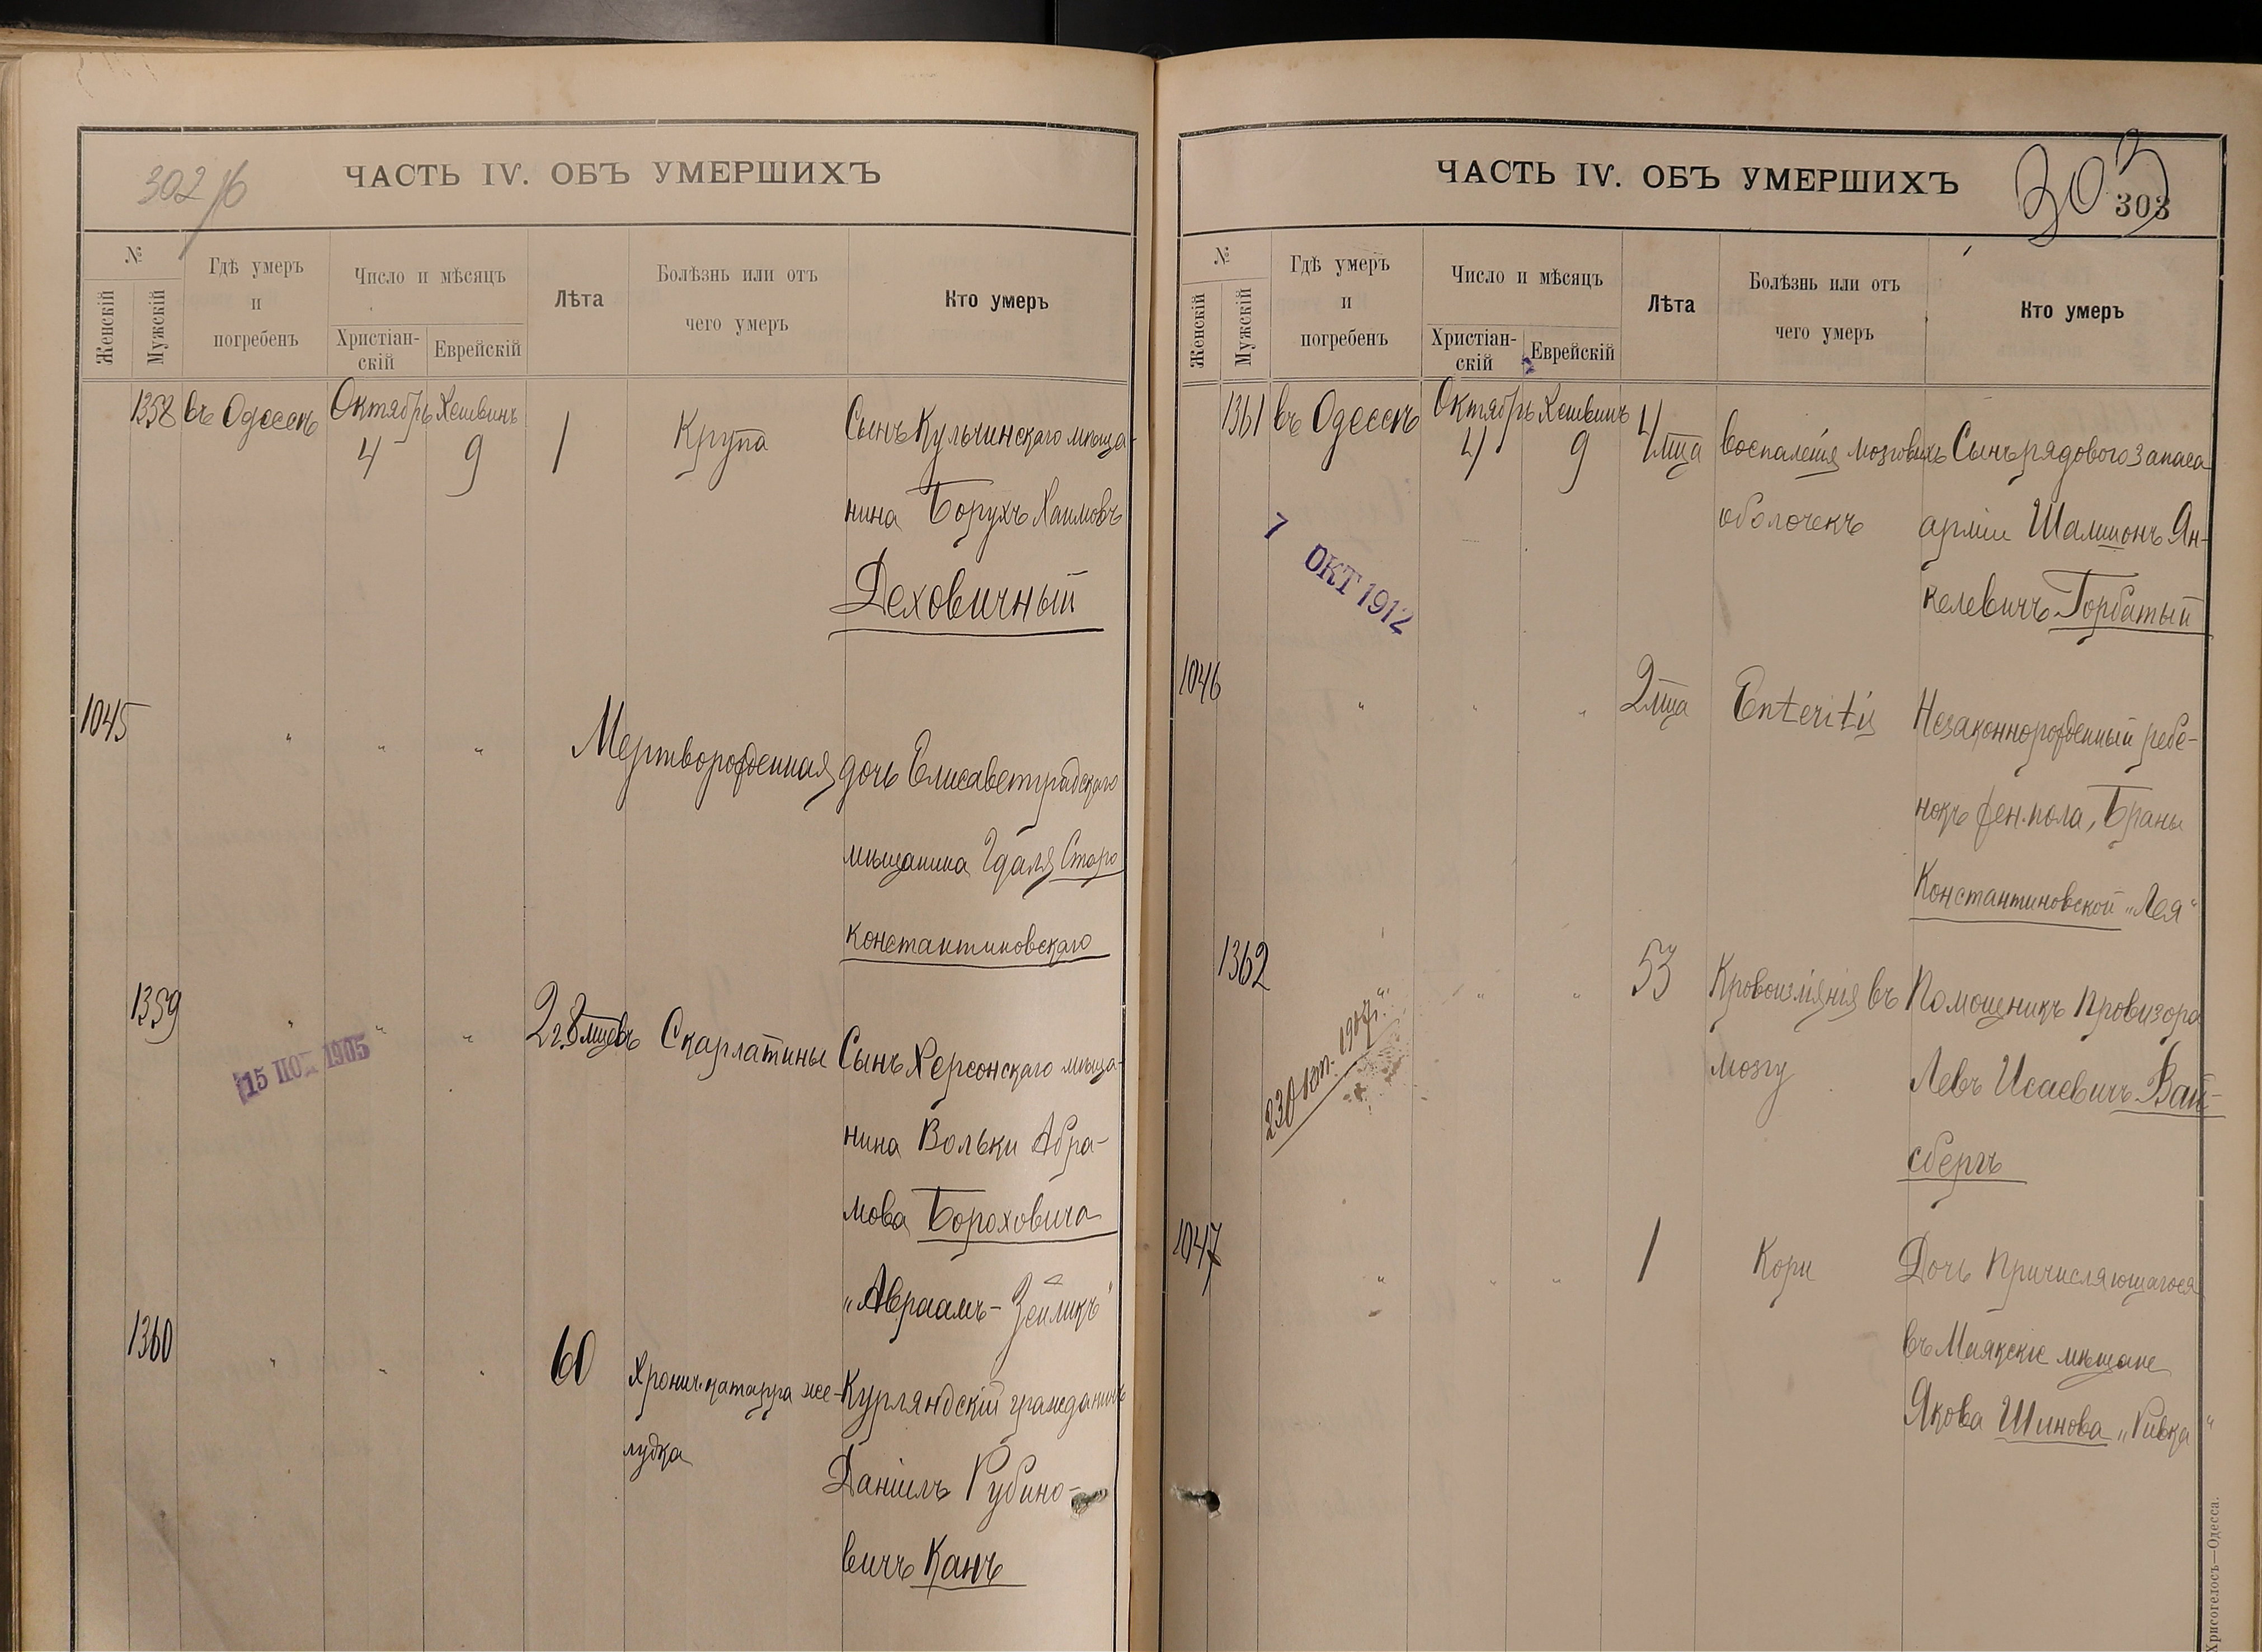 302/б
ЧАСТЬ IV. ОБЪ УМЕРШИХЪ
№
Женскій
Мужскій
Гдѣ умеръ
и
погребенъ
Число и мѣсяцъ
Христіан-
скій
Еврейскій
Лѣта
Болѣзнь или отъ
чего умеръ
Кто умеръ
1358 въ Одессѣ Октябрь Хешвинъ
4 9 1 Крупа Сынъ Кульчинскаго мѣща-
нина Борухъ Хаимовъ
Деховичный
1045 " " " Мертворожденная дочь Елисаветградскаго
мѣщанина Гдаля Старо
константиновскаго
1359 " " " 2 г. 8 мцевъ Скарлатины Сынъ Херсонскаго мѣща-
15 1905
нина Вольки Абра-
мова Бороховича
„Авраамъ-Зейликъ"
1360 " " " 60 Хронич. катарра же- Курляндскій гражданинъ
лудка
Даніилъ Рубино-
вичъ Канъ
ЧАСТЬ IV. ОБЪ УМЕРШИХЪ
303
303
№
Женскій
Мужскій
Гдѣ умеръ
и
погребенъ
Число и мѣсяцъ
Христіан-
скій
Еврейскій
Лѣта
Болѣзнь или отъ
чего умеръ
Кто умеръ
1361 въ Одессѣ Октябрь Хешвинъ
4 9 4 мца воспаленія мозговыхъ Сынъ рядового запаса
оболочекъ арміи Шамшонъ Ян-
келевичъ Горбатый
7 ОКТ 1912
1046 " " " 2 мца Enteritis Незаконнорожденный ребе-
нокъ жен. пола, Браны
Константиновской „Лея"
1362 " " " 53 Кровоизліянія въ Помощникъ Провизора
мозгу Левъ Исаевичъ Вай-
сбергъ
23 Окт. 190 г.
1047 " " " 1 Кори Дочь Причисляющагося
въ Маякскіе мѣщане
Якова Шинова „Ривка"
Хрисогелосъ—Одесса.